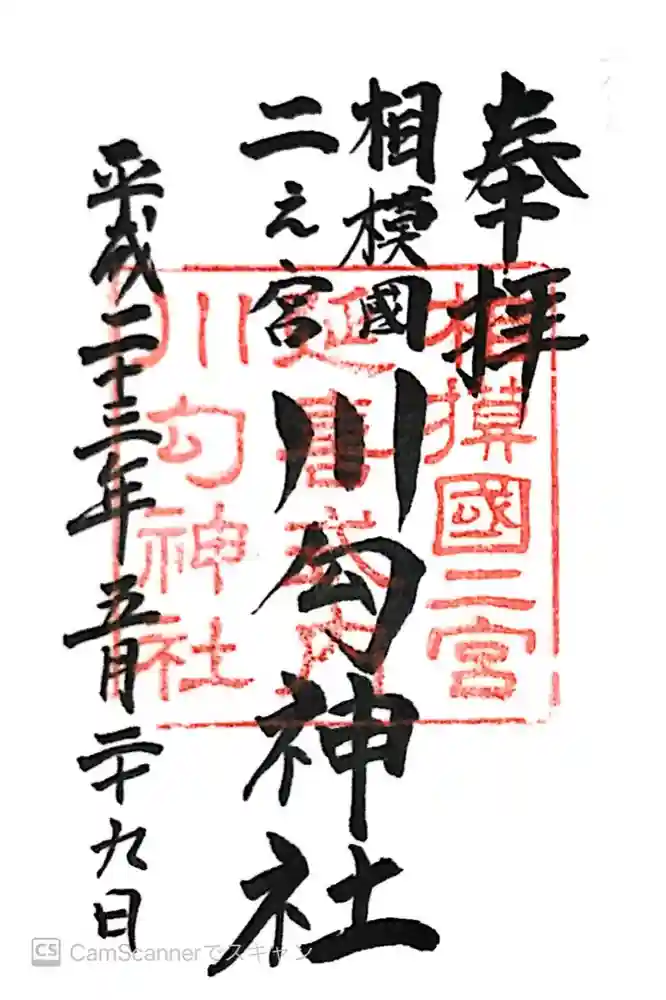 奉拝
相模國
二之宮
川勾神社
平成二十三年五月二十九日
相模國二宮
延喜式内
川勾神社
CS CamScannerでスキャン